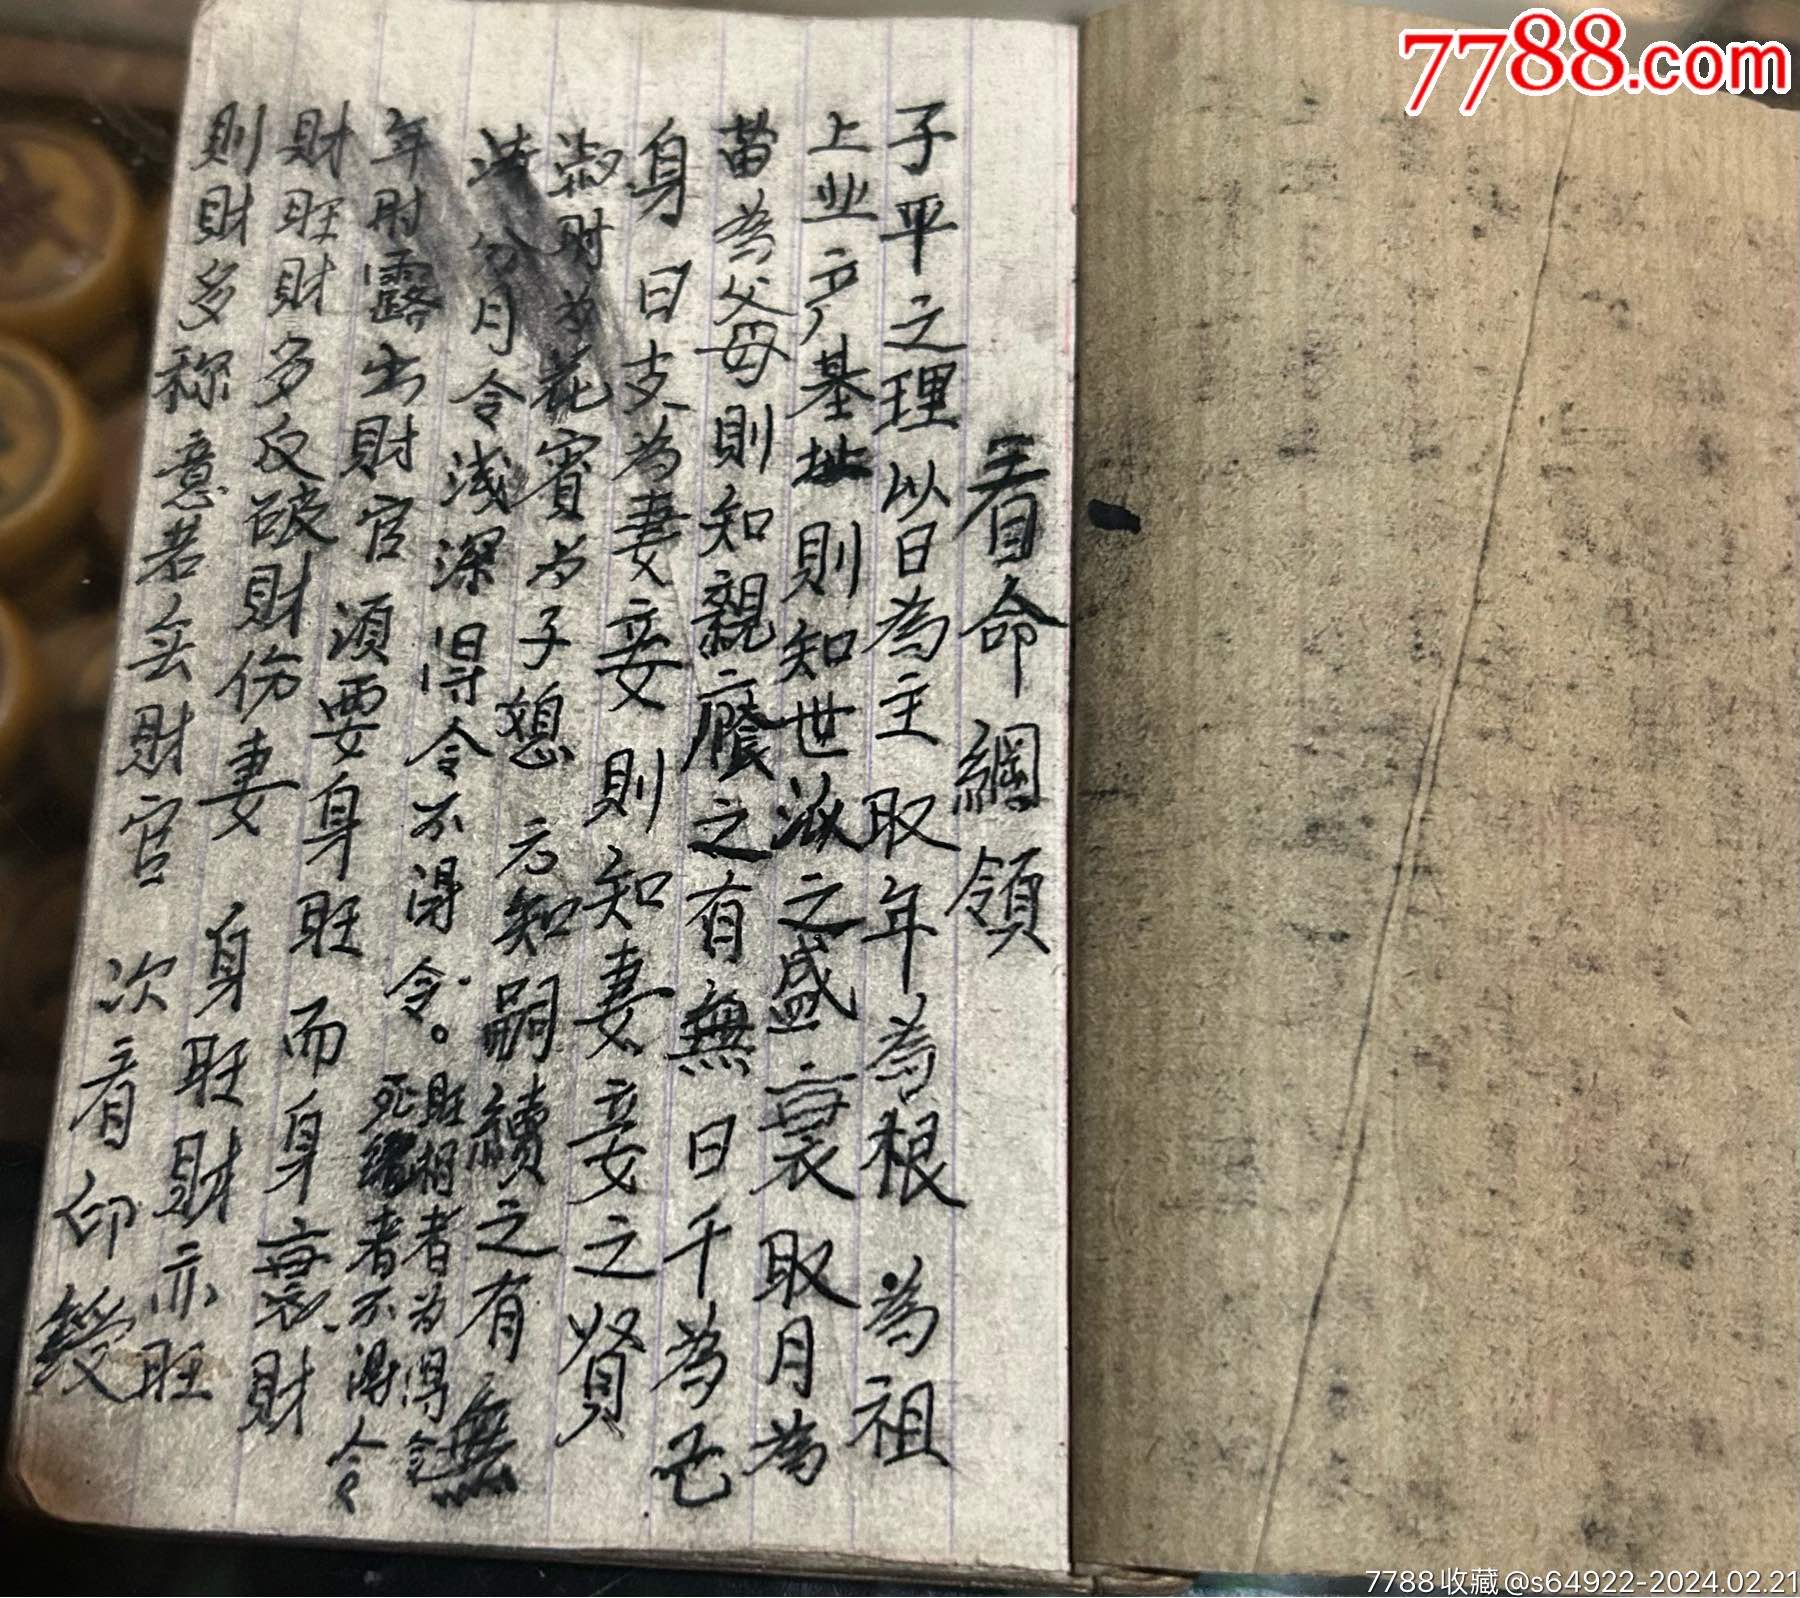 看命綱領
子平之理以日為主取年為根為祖
上业产基址則知世派之盛衰取月為
苗為父母則知親廕之有無日干為己
身日支為妻妾則知妻妾之贤
時为花實为子媳方知嗣續之有無
分月令浅深得令不得令。
旺相者为得令
死絕者不得令
年时露出財官須要身旺而身衰財
財旺財多反破財伤妻身旺財亦旺
則財多称意若无財官次看印綬
7788.com
7788收藏@s64922-2024.02.21